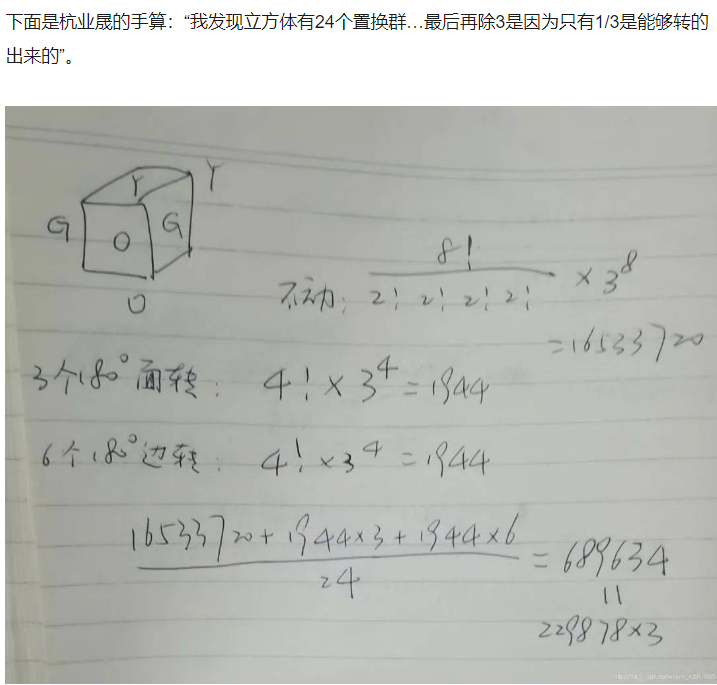 下面是杭业晟的手算：“我发现立方体有24个置换群…最后再除3是因为只有1/3是能够转的
出来的”。
Y Y
G O G
O
不动: 8! / 2! 2! 2! 2! × 3^8
=16533720
3个180°面转: 4! × 3^4 = 1944
6个180°边转: 4! × 3^4 = 1944
16533720 + 1944×3 + 1944×6 / 24 = 689634
||
229878×3